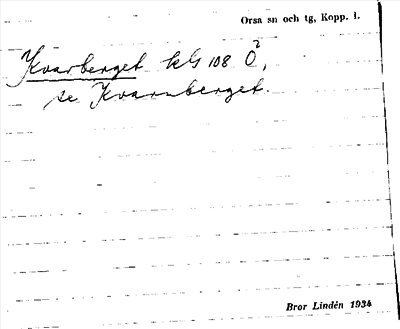 Orsa sn och tg, Kopp. l.
Kvarberget kls 108 Ö²,
se Kvarnberget.
Bror Lindén 1934